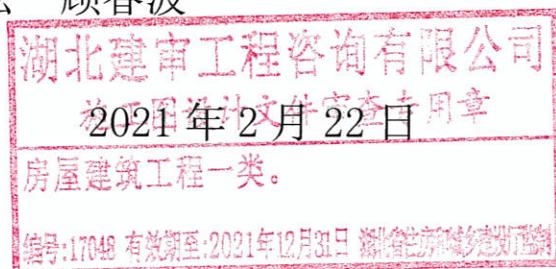 顾春波
湖北建审工程咨询有限公司
施工图设计文件审查专用章
2021 年 2 月 22 日
房屋建筑工程一类。
编号:17048 有效期至:2021年12月31日 湖北省住房和城乡建设厅监制